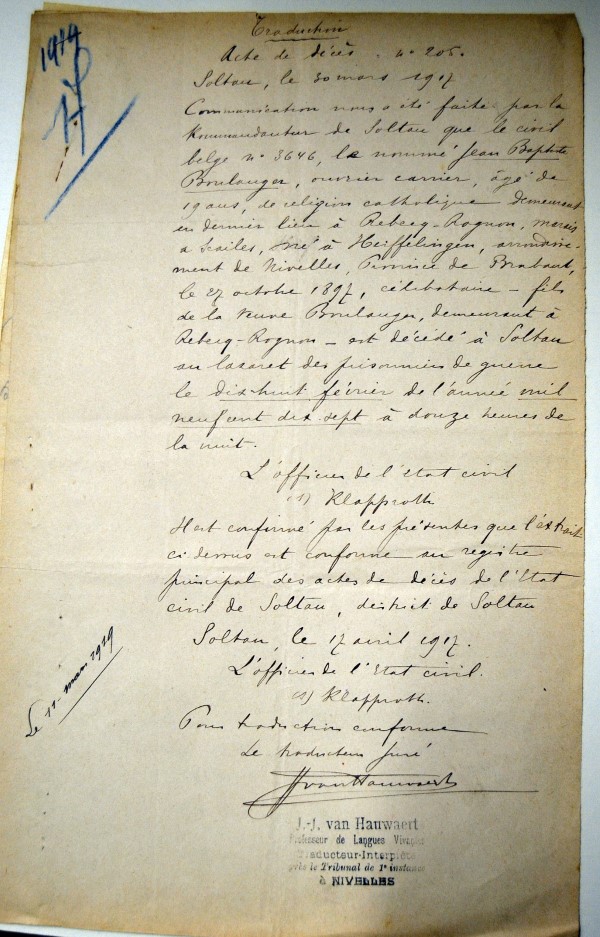 1919
Traduction
Acte de décès. N° 205.
Soltau, le 30 mars 1917
Communication nous a été faite par la
Kommandantur de Soltau que le civil
belge n° 3646, le nommé Jean Baptiste
Boulanger, ouvrier carrier, âgé de
19 ans, de religion catholique demeurant
en dernier lieu à Rebecq-Rognon,
né à Heiffelingen, arrondisse-
ment de Nivelles, Province de Brabant,
le 27 octobre 1897, célibataire - fils
de la veuve Boulanger, demeurant à
Rebecq-Rognon - est décédé à Soltau
au lazaret des prisonniers de guerre
le dix-huit février de l'année mil
neuf cent dix-sept à douze heures de
la nuit.
L'officier de l'état civil
(s) Klapproth
Il est confirmé par les présentes que l'extrait
ci dessus est conforme au registre
principal des actes de décès de l'Etat
civil de Soltau, district de Soltau
Soltau, le 17 avril 1917.
L'officier de l'Etat civil.
(s) Klapproth.
Pour traduction conforme
Le traducteur juré
JJvanHauwaert
J.-J. van Hauwaert
Professeur de Langues Vivantes
Traducteur-Interprète
près le Tribunal de 1e instance
à NIVELLES
Le 11 mars 1919